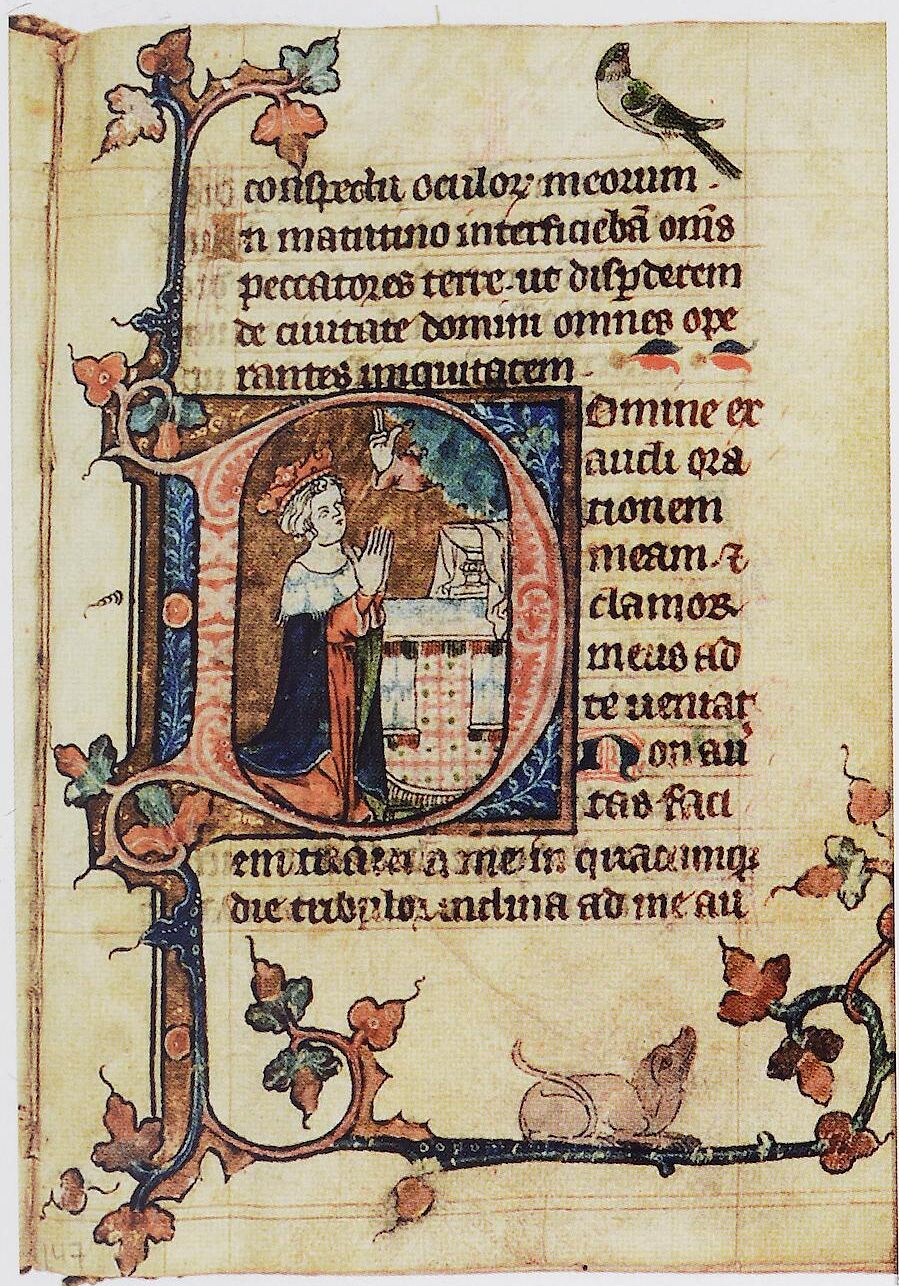 conspectu oculoꝝ meorum .
In matutino interficiebā om̄s
peccatores terre . ut disꝑderem
de ciuitate domini omnes ope
rantes iniquitatem
Domine ex
audi ora
tionem
meam . ⁊
clamor
meus ad
te ueniat
Non au
tas faci
em tuam a me in quacumqꝫ
die tribulor inclina ad me au
147